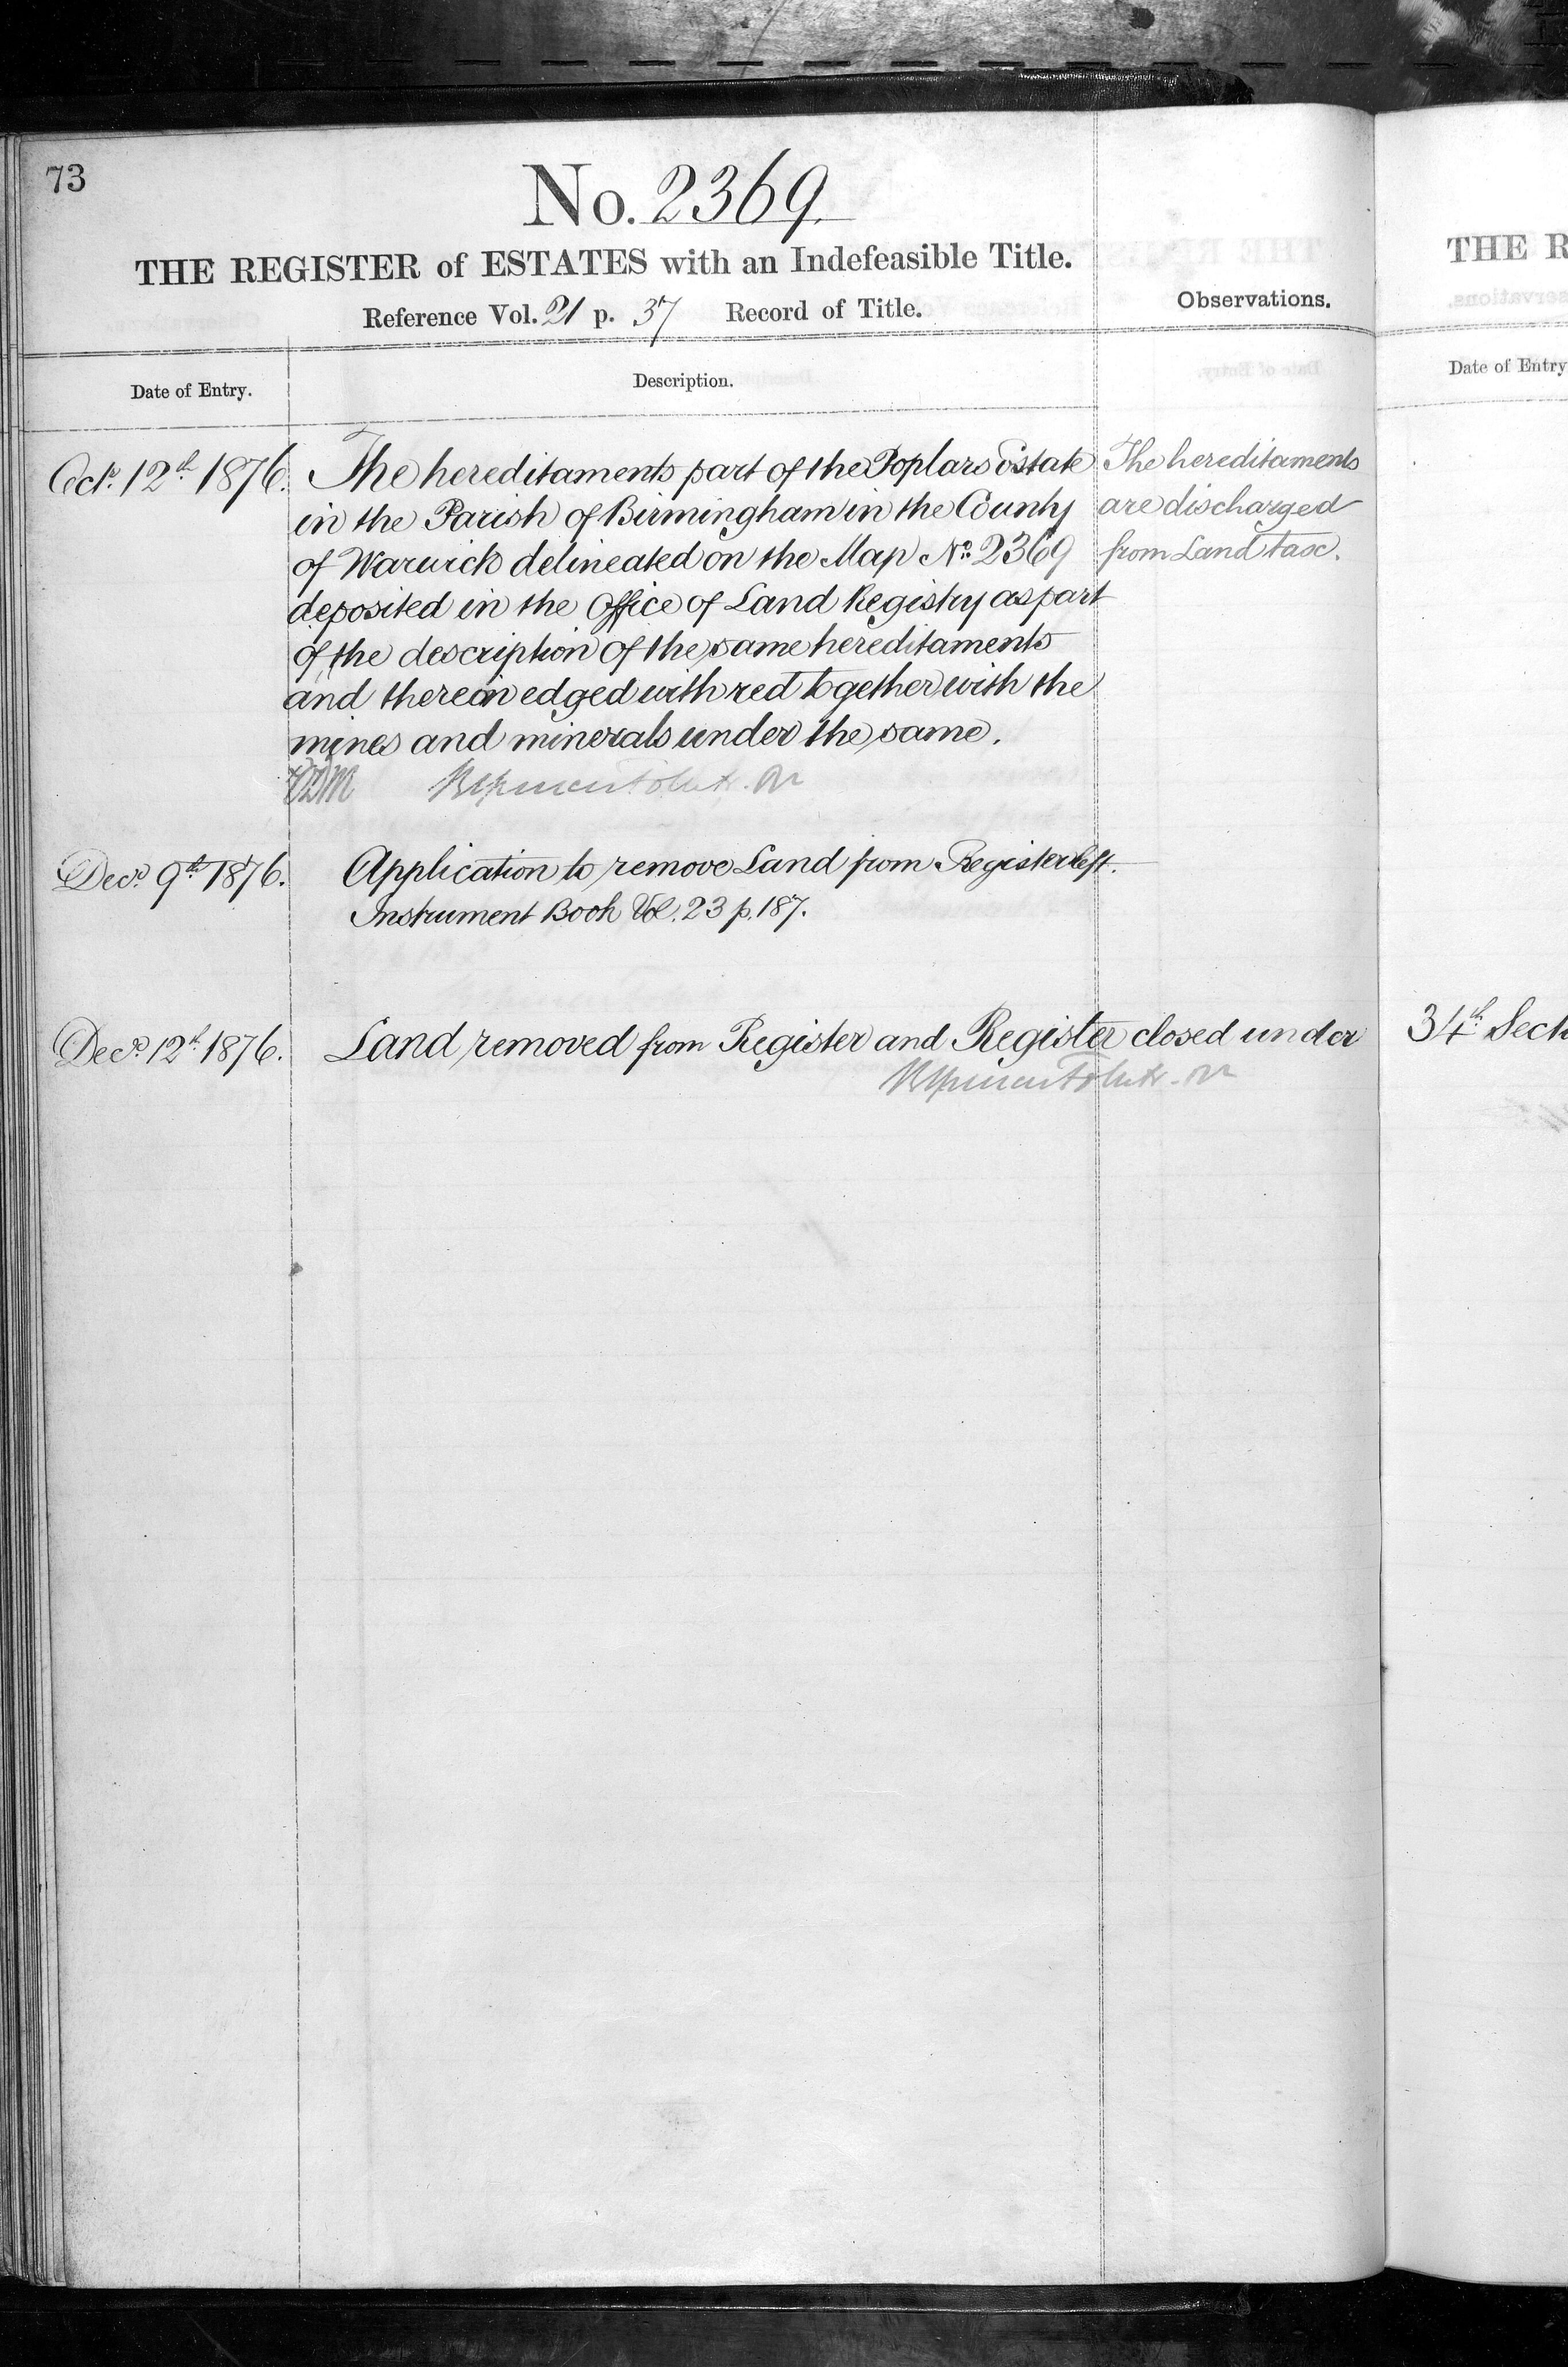 73
No. 2369.
THE REGISTER of ESTATES with an Indefeasible Title.
Reference Vol. 21 p. 37 Record of Title.
Observations.
Date of Entry.
Description.
Octr. 12th 1876.
The hereditaments part of the Poplars Estate
in the Parish of Birmingham in the County
of Warwick delineated on the Map No. 2369
deposited in the Office of Land Registry as part
of the description of the same hereditaments
and therein edged with red together with the
mines and minerals under the same.
The hereditaments
are discharged
from Land tax.
Decr. 9th 1876.
Application to remove Land from Register left.
Instrument Book Vol. 23 p. 187.
Decr. 12th 1876.
Land removed from Register and Register closed under
THE R
Date of Entry
34th Sect